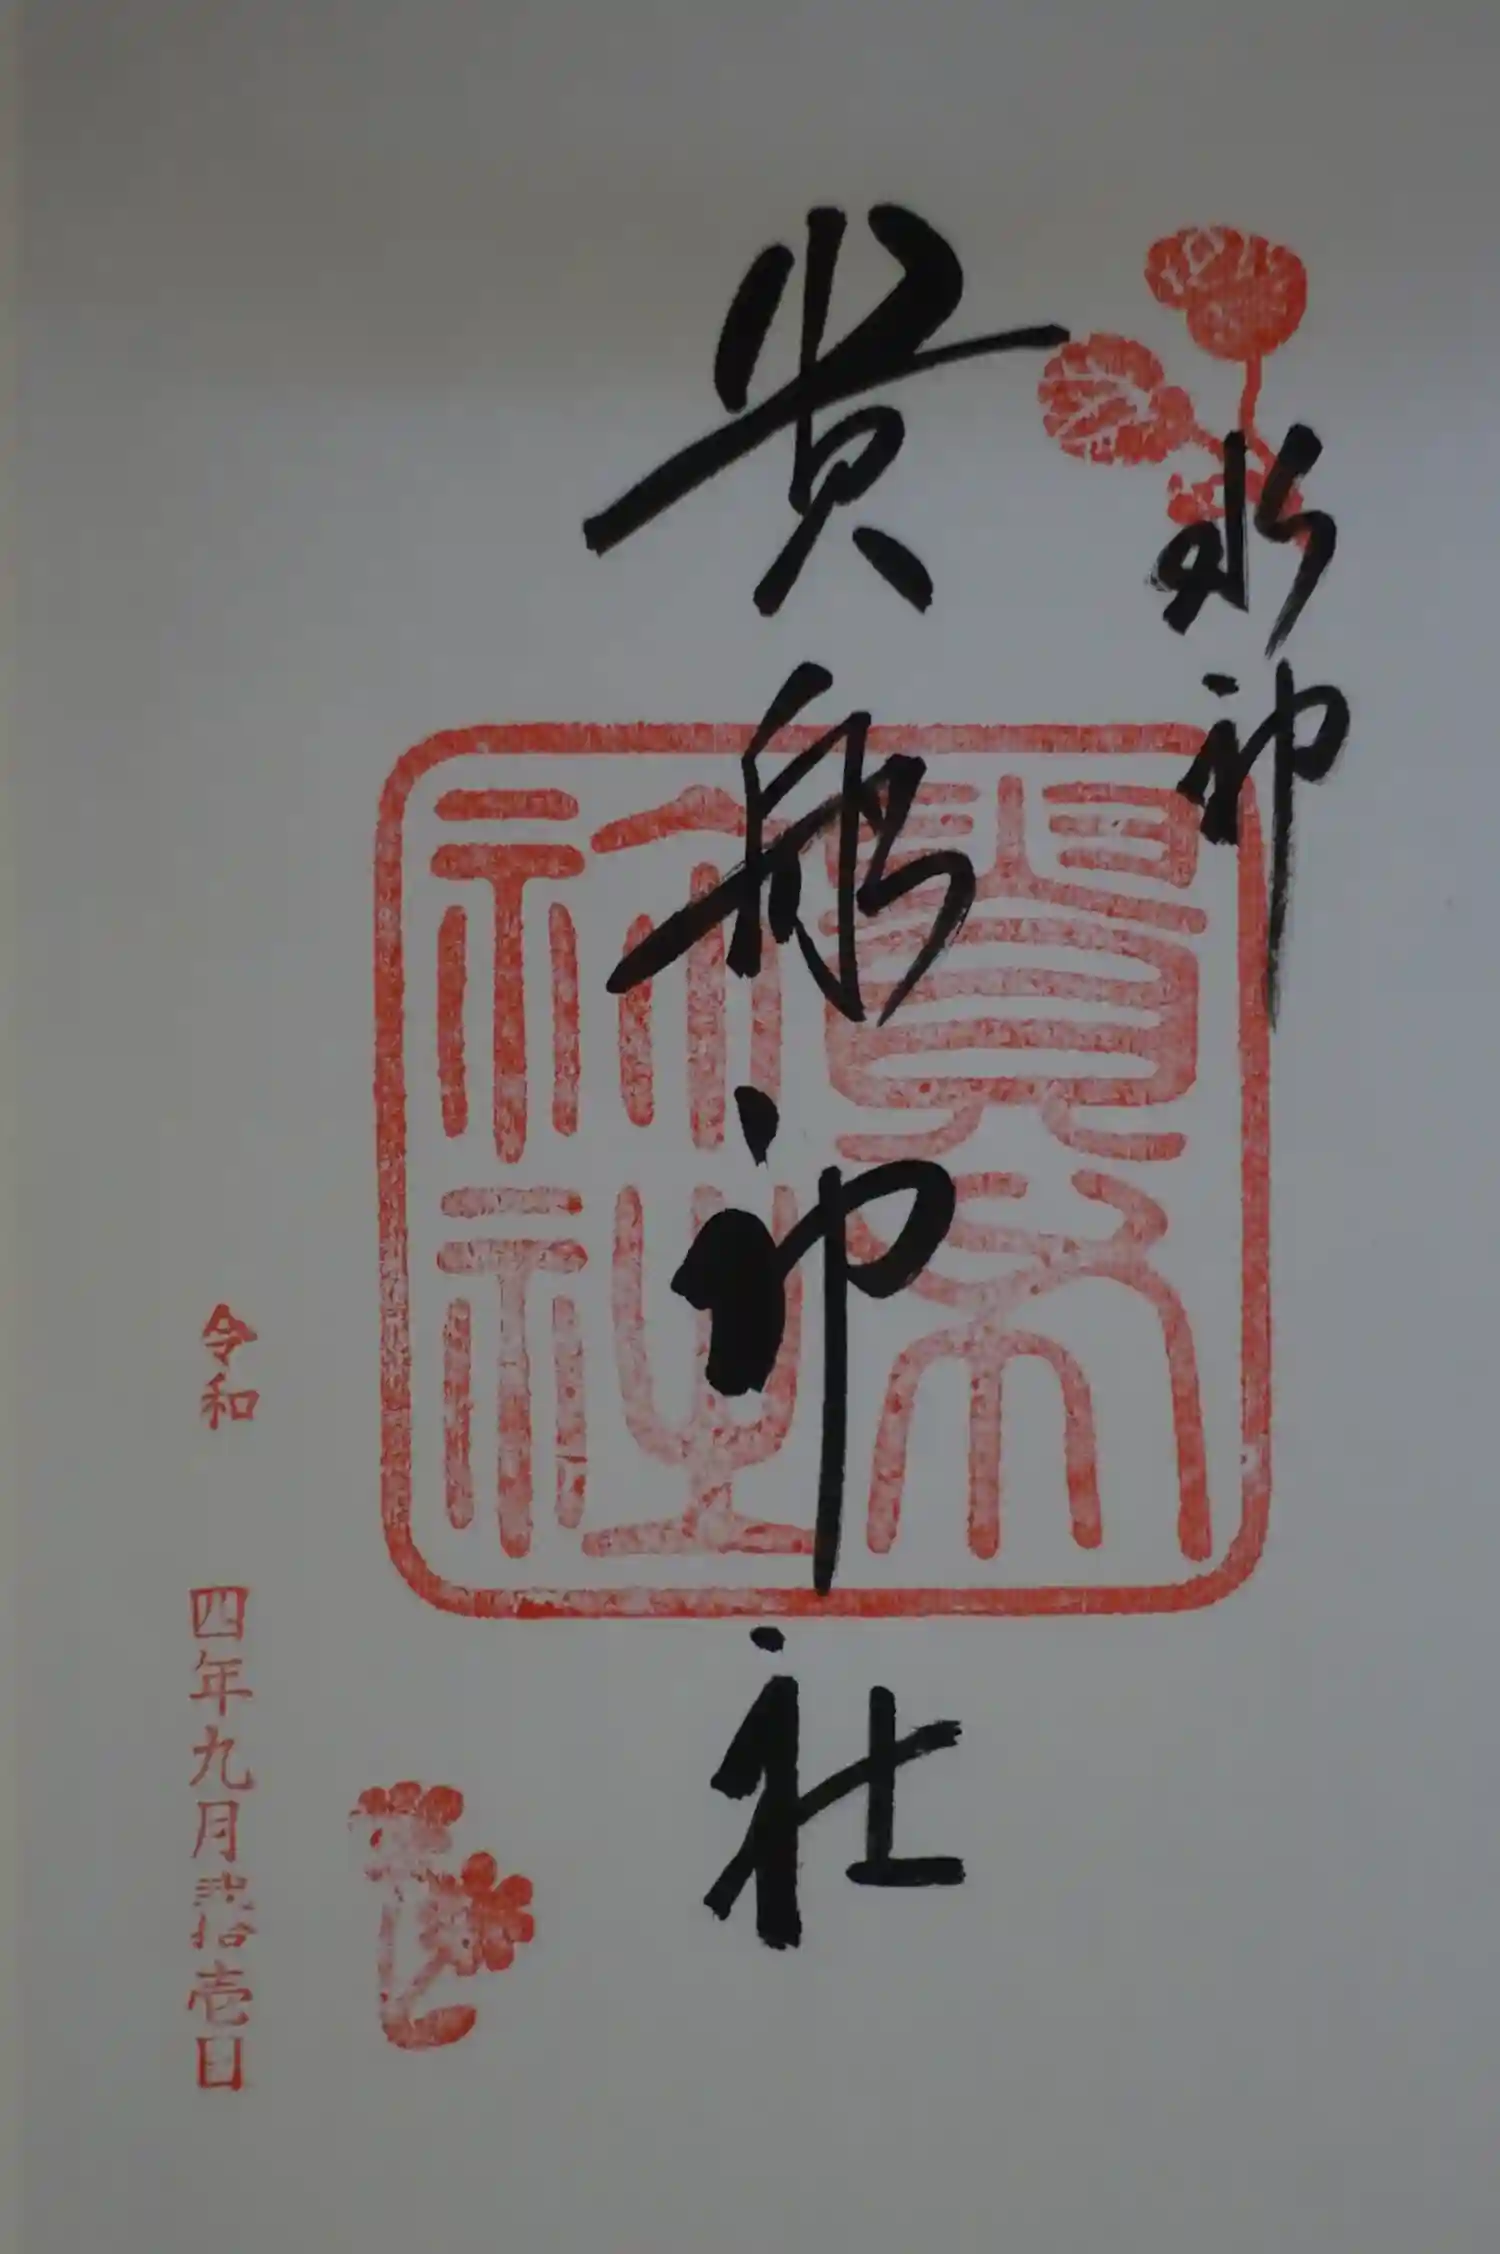 水神
貴船神社
貴布
祢社
令和 四年九月弐拾壱日